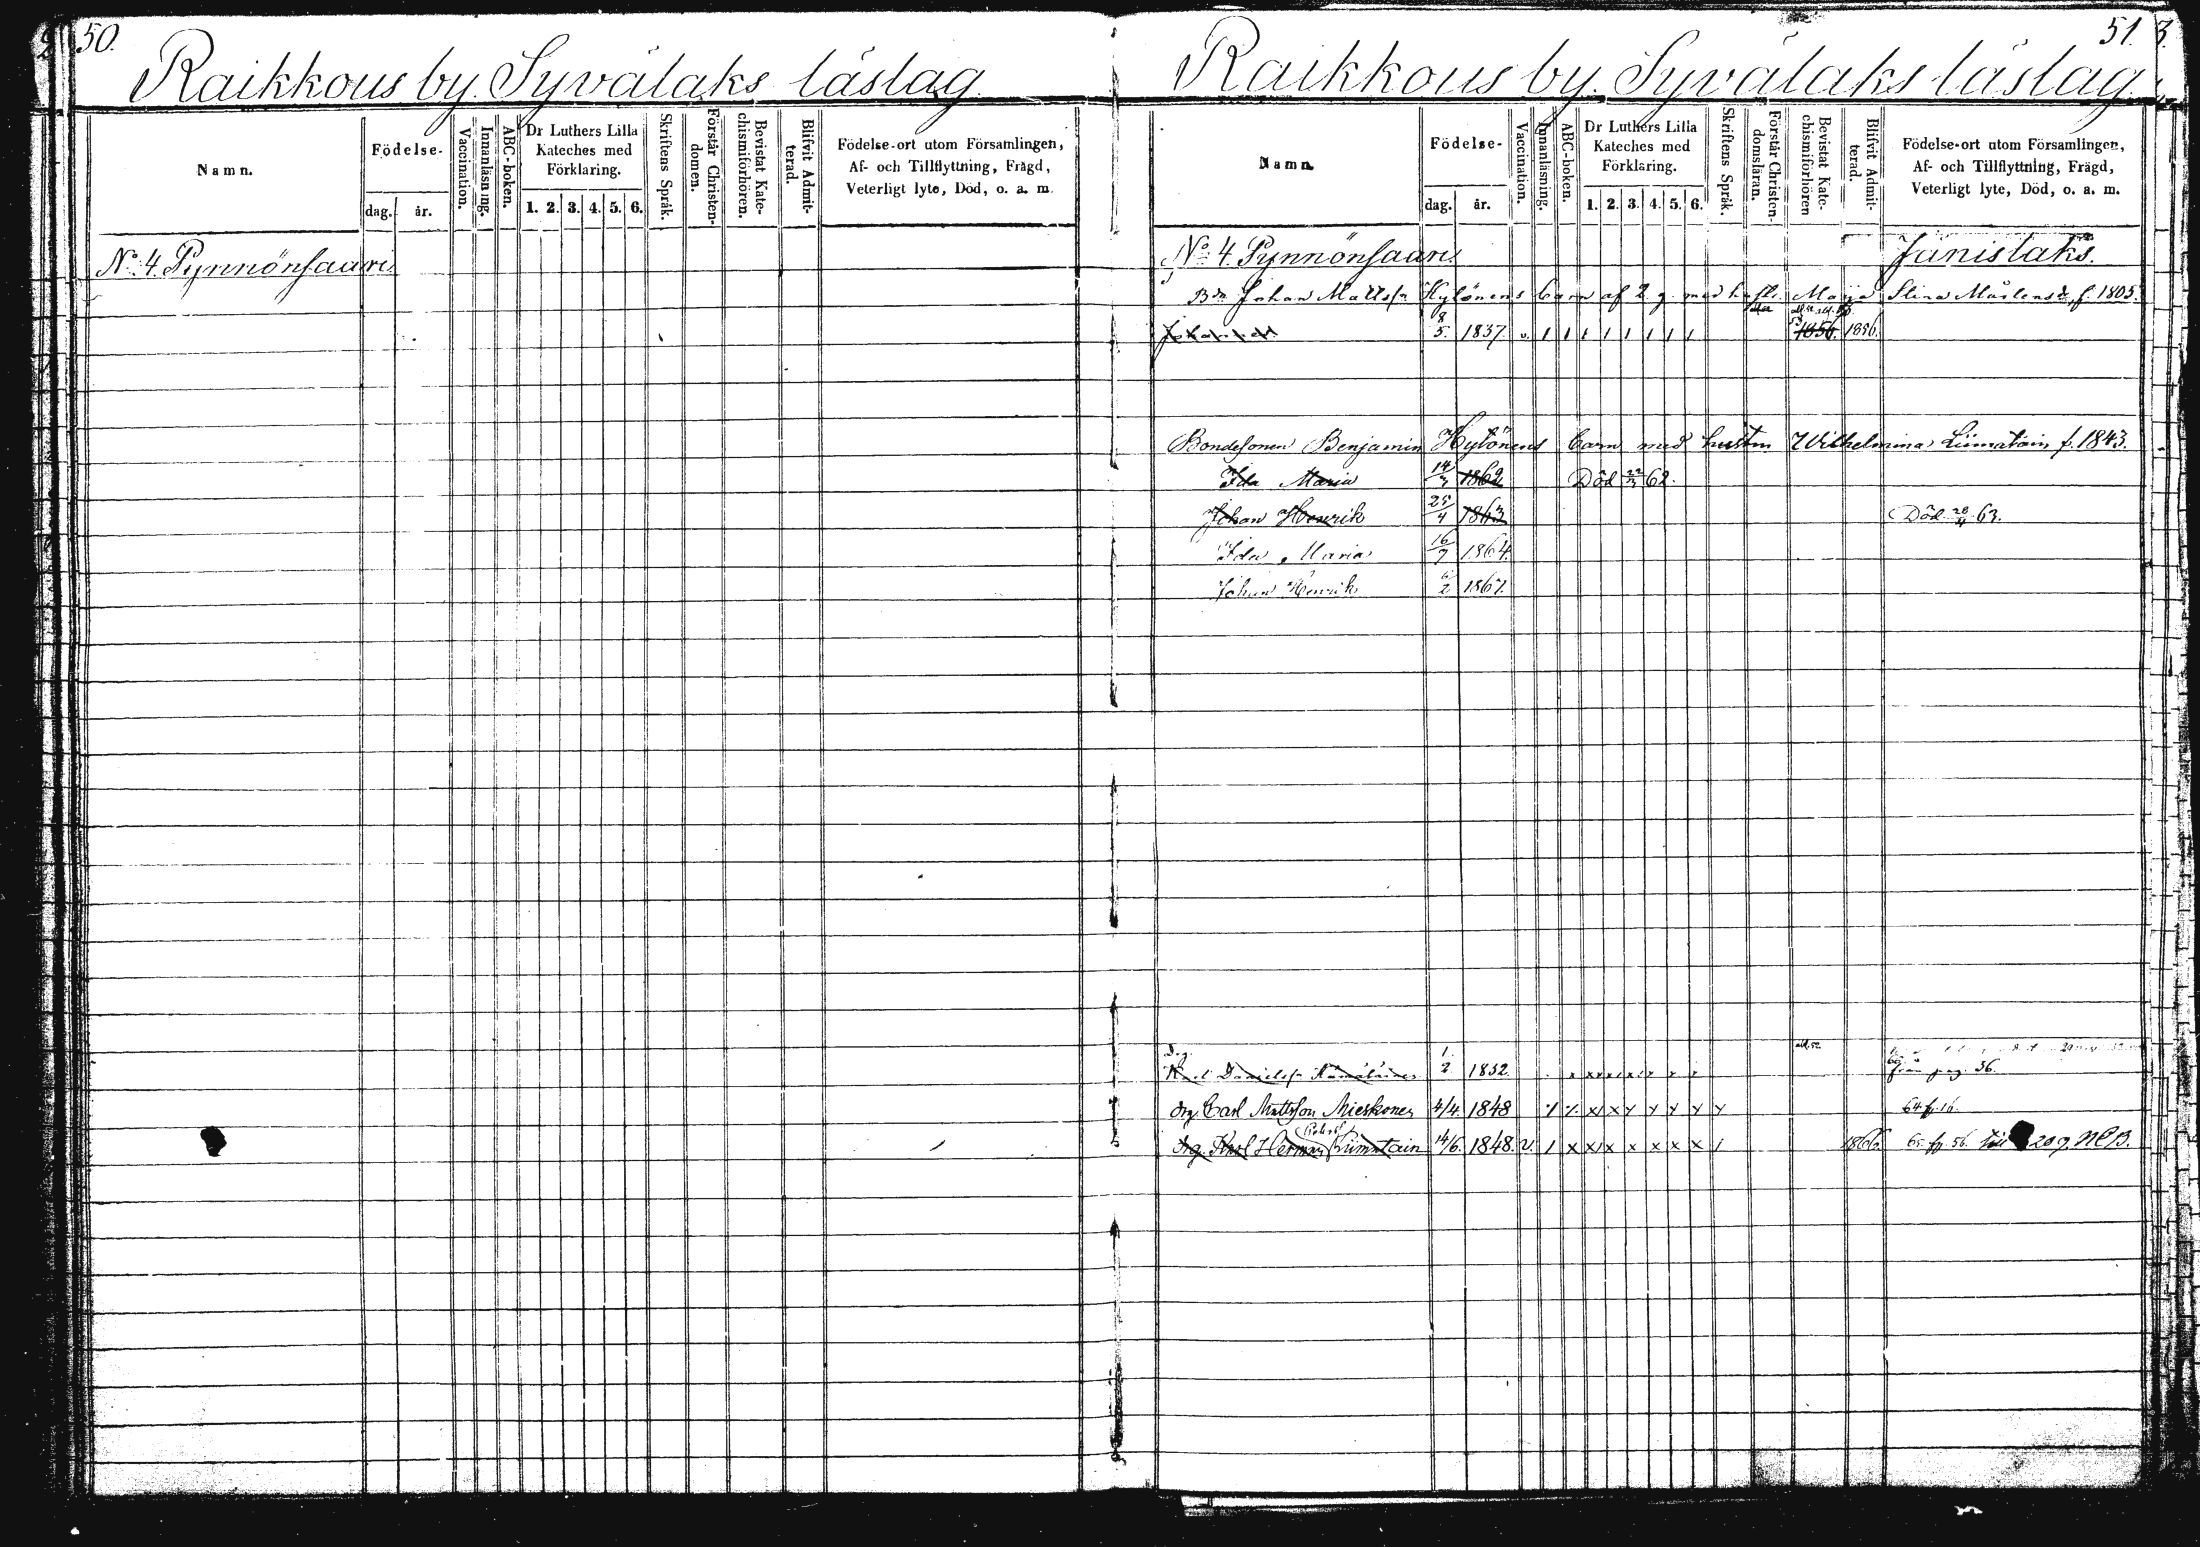 50.
Raikkous by. Syvälaks läslag
Namn.
Födelse-
dag. år.
Vaccination.
Innanläsning.
ABC-boken.
Dr Luthers Lilla Kateches med Förklaring.
1. 2. 3. 4. 5. 6.
Skriftens Språk.
Förstår Christendomen.
Bevistat Katechismiförhören.
Blifvit Admitterad.
Födelse-ort utom Församlingen,
Af- och Tillflyttning, Frägd,
Veterligt lyte, Död, o. a. m.
No 4. Pynnönsaari
51.
Raikkous by. Syvälaks läslag
Namn
Födelse-
dag. år.
Vaccination.
Innanläsning.
ABC-boken.
Dr Luthers Lilla Kateches med Förklaring.
1. 2. 3. 4. 5. 6.
Skriftens Språk.
Förstår Christendomsläran.
Bevistat Katechismiförhören
Blifvit Admitterad.
Födelse-ort utom Församlingen,
Af- och Tillflyttning, Frägd,
Veterligt lyte, Död, o. a. m.
No 4. Pynnönsaari Jänislaks.
Bdn Johan Mattss:n Hytönens barn af 2 g. med hust. Maja Stina Mårtensd. f. 1805.
8/5. 1837. v. 1856. 1856.
Bondesonen Benjamin Hytönens barn med hustrun Wilhelmina Liimatain f. 1843.
Ida Maria 14/3 1862 Död 22/3 62.
Johan Henrik 25/4 1863 Död 28/4 63.
Ida Maria 16/7 1864.
Johan Henrik 6/2 1867.
Drg.
Danielss:n Hämäläinen 1/2 1832. från pag. 56.
drg. Carl Mattsson Mieskonen 4/4. 1848 x x x x x x x 64 fr. 16.
drg. Karl Herman Liimatain 14/6. 1848. v. 1 x x x x x x x 1 1866. 65. fr. 56. till 209. NCB.